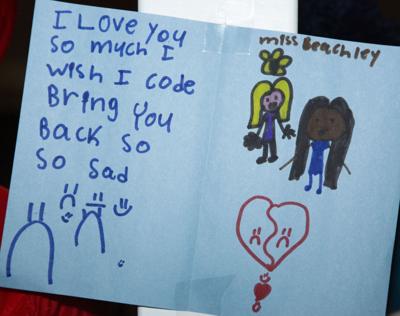 I Love you
so much I
wish I code
Bring you
Back so
so sad
miss Beachley